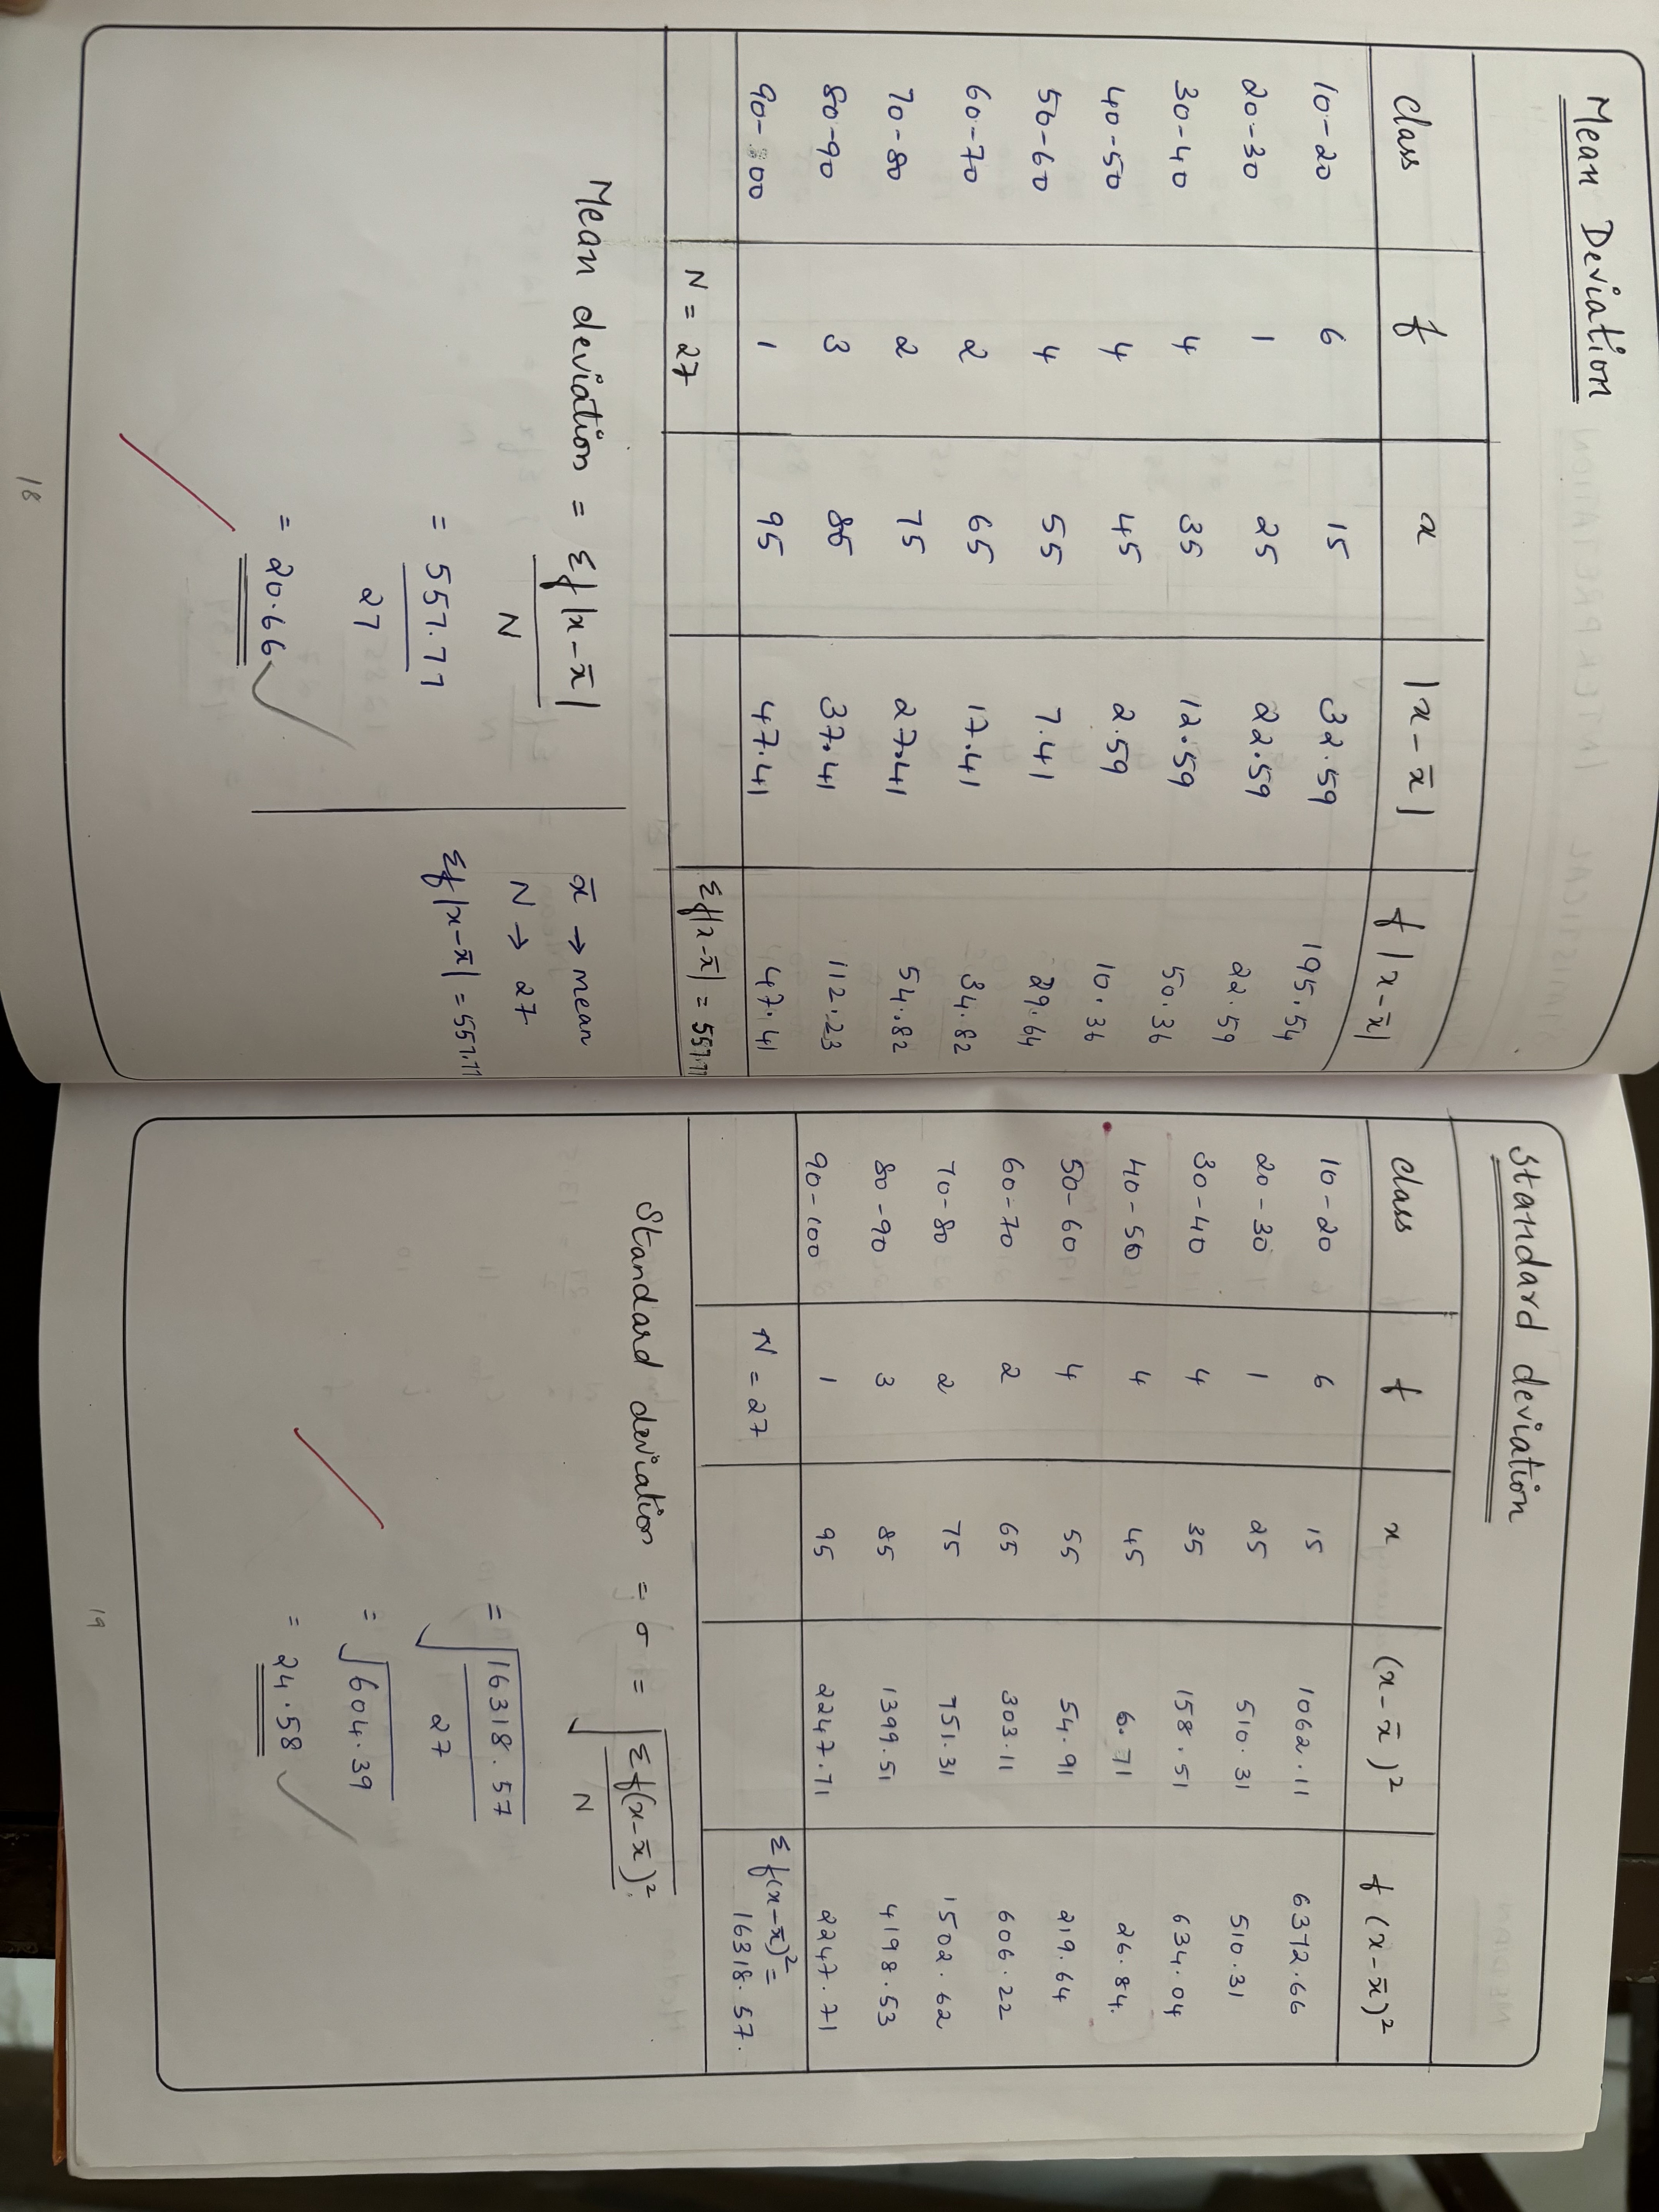 Mean Deviation
class f x |x-x̄| f|x-x̄|
10-20 6 15 32.59 195.54
20-30 1 25 22.59 22.59
30-40 4 35 12.59 50.36
40-50 4 45 2.59 10.36
50-60 4 55 7.41 29.64
60-70 2 65 17.41 34.82
70-80 2 75 27.41 54.82
80-90 3 85 37.41 112.23
90-100 1 95 47.41 47.41
N = 27 Σf|x-x̄| = 557.77
Mean deviation = Σf|x-x̄|
N
= 557.77
27
= 20.66
x̄ → mean
N → 27
Σf|x-x̄| = 557.77
18
Standard deviation
class f x (x-x̄)² f(x-x̄)²
10-20 6 15 1062.11 6372.66
20-30 1 25 510.31 510.31
30-40 4 35 158.51 634.04
40-50 4 45 6.71 26.84
50-60 4 55 54.91 219.64
60-70 2 65 303.11 606.22
70-80 2 75 751.31 1502.62
80-90 3 85 1399.51 4198.53
90-100 1 95 2247.71 2247.71
N = 27 Σf(x-x̄)² =
16318.57.
Standard deviation = σ = √Σf(x-x̄)²
N
= √16318.57
27
= √604.39
= 24.58
19